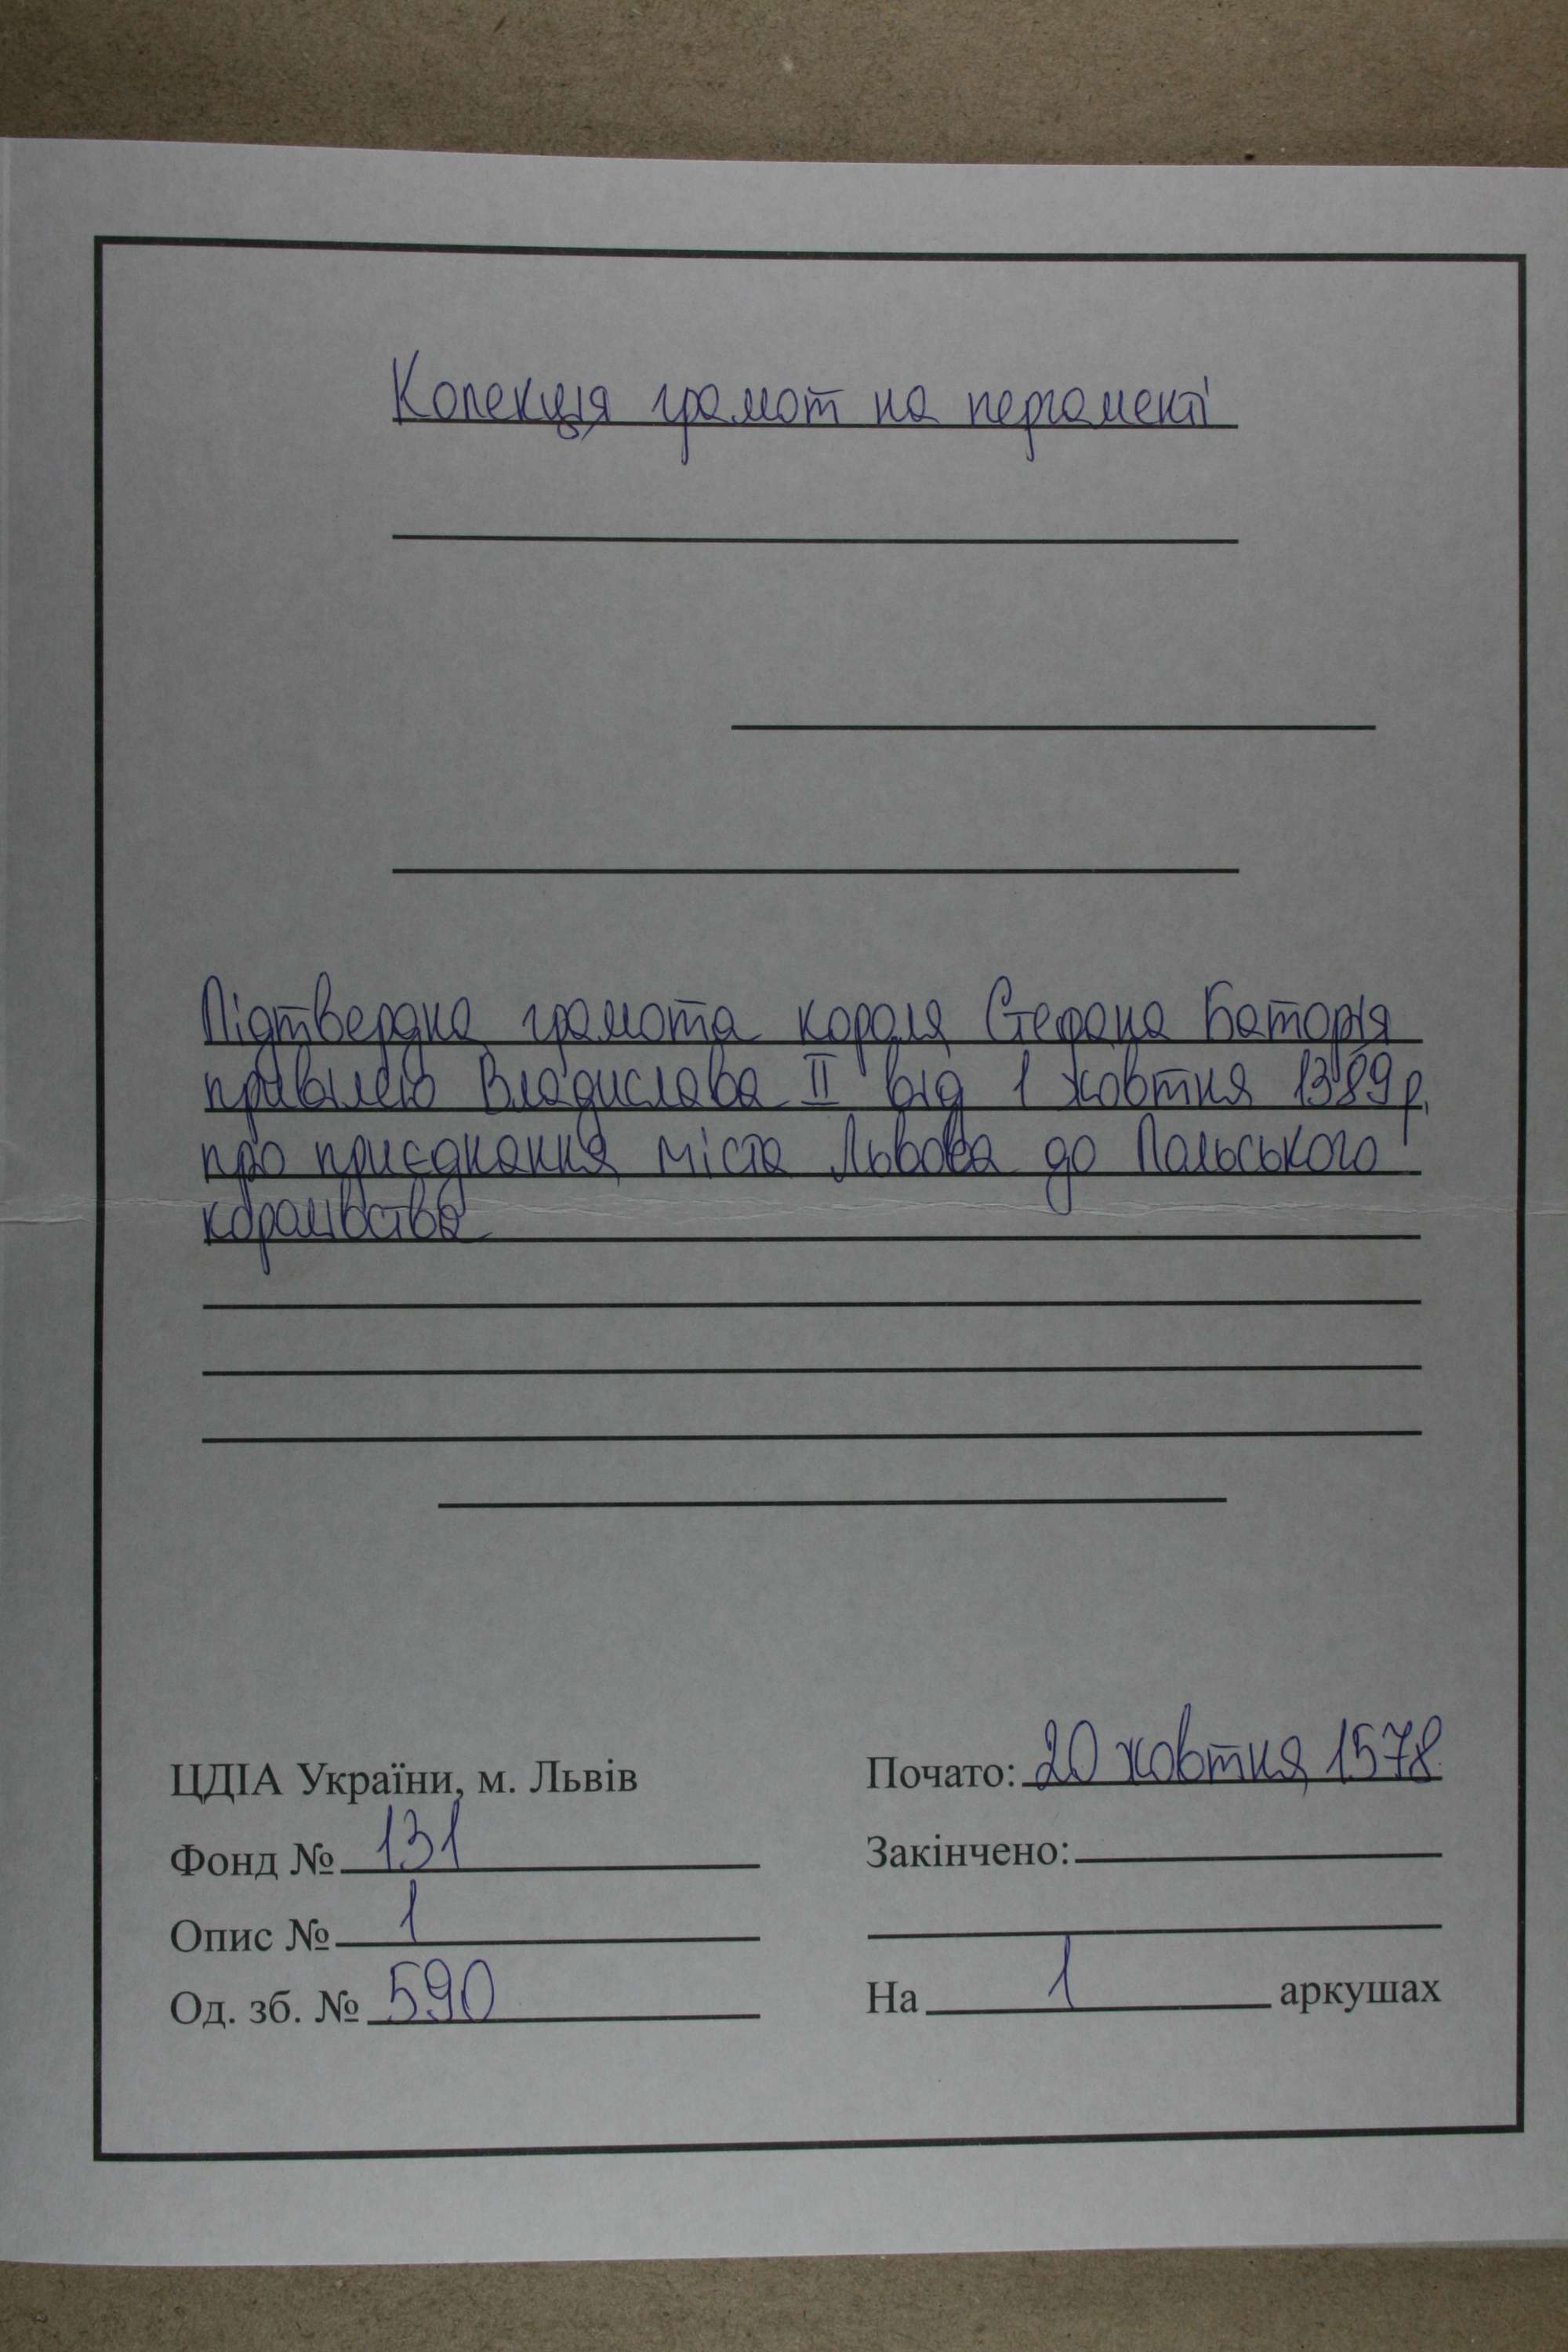 Колекція грамот на пергаменті
Підтвердна грамота короля Стефана Баторія
привілею Владислава II від 1 жовтня 1389 р.
про приєднання міста Львова до Польського
королівства
ЦДІА України, м. Львів
Фонд № 131
Опис № 1
Од. зб. № 590
Почато: 20 жовтня 1578
Закінчено:
На 1 аркушах